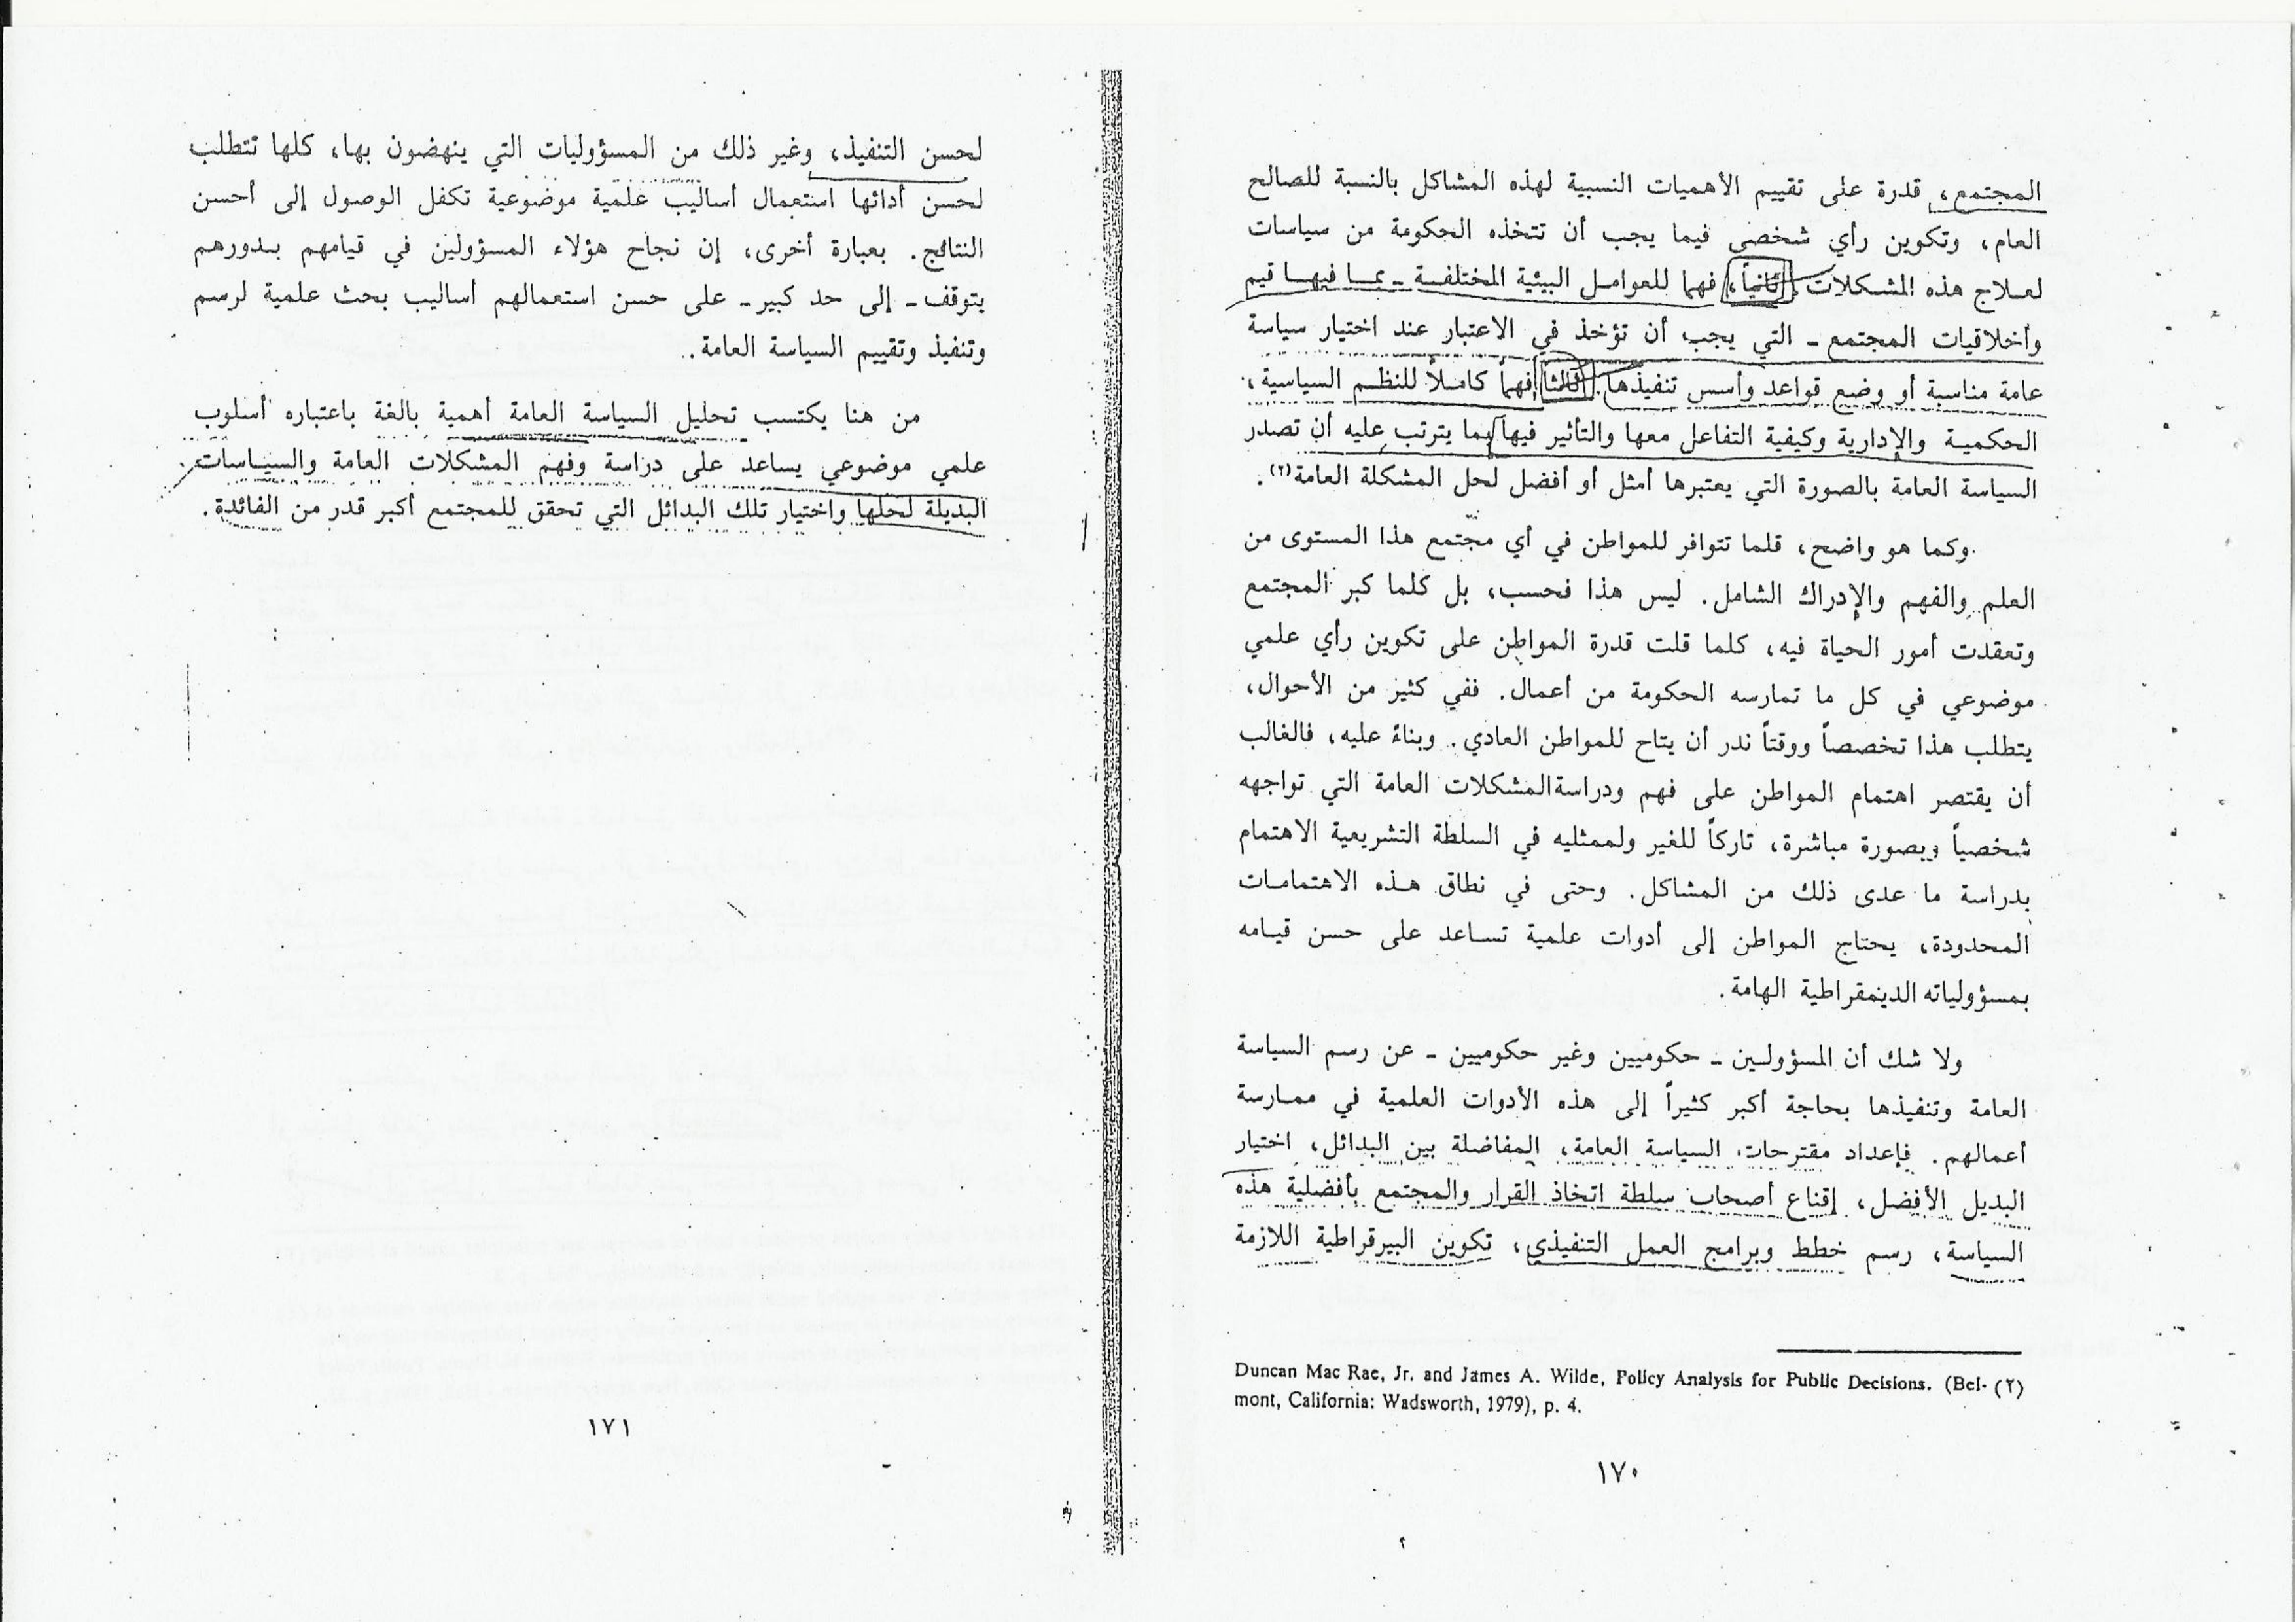 المجتمع، قدرة على تقييم الأهميات النسبية لهذه المشاكل بالنسبة للصالح
العام، وتكوين رأي شخصي فيما يجب أن تتخذه الحكومة من سياسات
لعلاج هذه المشكلات. ثانياً، فهماً للعوامل البيئية المختلفة ـ بما فيها قيم
وأخلاقيات المجتمع ـ التي يجب أن تؤخذ في الاعتبار عند اختيار سياسة
عامة مناسبة أو وضع قواعد وأسس تنفيذها. ثالثاً، فهماً كاملاً للنظم السياسية،
الحكمية والإدارية وكيفية التفاعل معها والتأثير فيها بما يترتب عليه أن تصدر
السياسة العامة بالصورة التي يعتبرها أمثل أو أفضل لحل المشكلة العامة(٢).
وكما هو واضح، قلما تتوافر للمواطن في أي مجتمع هذا المستوى من
العلم والفهم والإدراك الشامل. ليس هذا فحسب، بل كلما كبر المجتمع
وتعقدت أمور الحياة فيه، كلما قلت قدرة المواطن على تكوين رأي علمي
موضوعي في كل ما تمارسه الحكومة من أعمال. ففي كثير من الأحوال،
يتطلب هذا تخصصاً ووقتاً ندر أن يتاح للمواطن العادي. وبناءً عليه، فالغالب
أن يقتصر اهتمام المواطن على فهم ودراسة المشكلات العامة التي تواجهه
شخصياً وبصورة مباشرة، تاركاً للغير ولممثليه في السلطة التشريعية الاهتمام
بدراسة ما عدى ذلك من المشاكل. وحتى في نطاق هذه الاهتمامات
المحدودة، يحتاج المواطن إلى أدوات علمية تساعد على حسن قيامه
بمسؤولياته الديمقراطية الهامة.
ولا شك أن المسؤولين ـ حكوميين وغير حكوميين ـ عن رسم السياسة
العامة وتنفيذها بحاجة أكبر كثيراً إلى هذه الأدوات العلمية في ممارسة
أعمالهم. فإعداد مقترحات السياسة العامة، المفاضلة بين البدائل، اختيار
البديل الأفضل، إقناع أصحاب سلطة اتخاذ القرار والمجتمع بأفضلية هذه
السياسة، رسم خطط وبرامج العمل التنفيذي، تكوين البيرقراطية اللازمة
(٢) Duncan Mac Rae, Jr. and James A. Wilde, Policy Analysis for Public Decisions. (Bel-
mont, California: Wadsworth, 1979), p. 4.
١٧٠
لحسن التنفيذ، وغير ذلك من المسؤوليات التي ينهضون بها، كلها تتطلب
لحسن أدائها استعمال أساليب علمية موضوعية تكفل الوصول إلى أحسن
النتائج. بعبارة أخرى، إن نجاح هؤلاء المسؤولين في قيامهم بدورهم
يتوقف ـ إلى حد كبير ـ على حسن استعمالهم أساليب بحث علمية لرسم
وتنفيذ وتقييم السياسة العامة.
من هنا يكتسب تحليل السياسة العامة أهمية بالغة باعتباره أسلوب
علمي موضوعي يساعد على دراسة وفهم المشكلات العامة والسياسات
البديلة لحلها واختيار تلك البدائل التي تحقق للمجتمع أكبر قدر من الفائدة.
١٧١